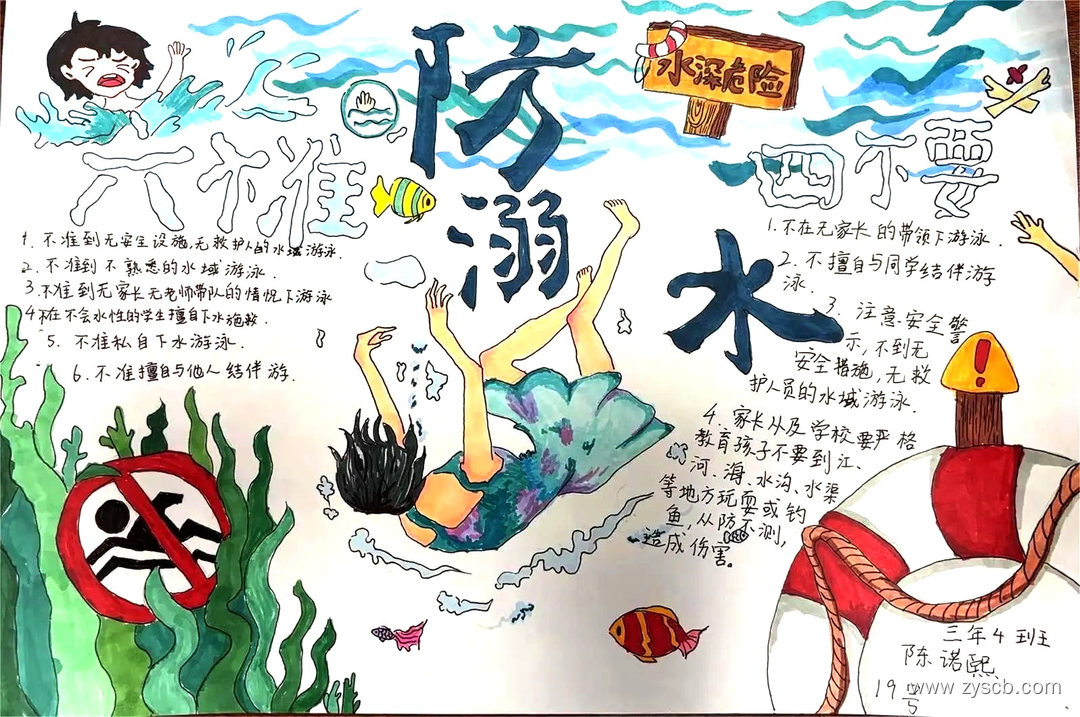 防
溺
水
水深危险
六不准
1. 不准到无安全设施,无救护人的水域游泳.
2. 不准到不熟悉的水域游泳.
3. 不准到无家长无老师带队的情况下游泳
4 不在不会水性的学生擅自下水施救.
5. 不准私自下水游泳.
6. 不准擅自与他人结伴游.
四不要
1. 不在无家长的带领下游泳.
2. 不擅自与同学结伴游
泳.
3. 注意安全警
示,不到无
安全措施,无救
护人员的水域游泳.
4. 家长以及学校要严格
教育孩子不要到江、
河、海、水沟、水渠
等地方玩耍或钓
鱼,从防不测,
造成伤害。
三年4班
陈诺熙
19号
www.zyscb.com